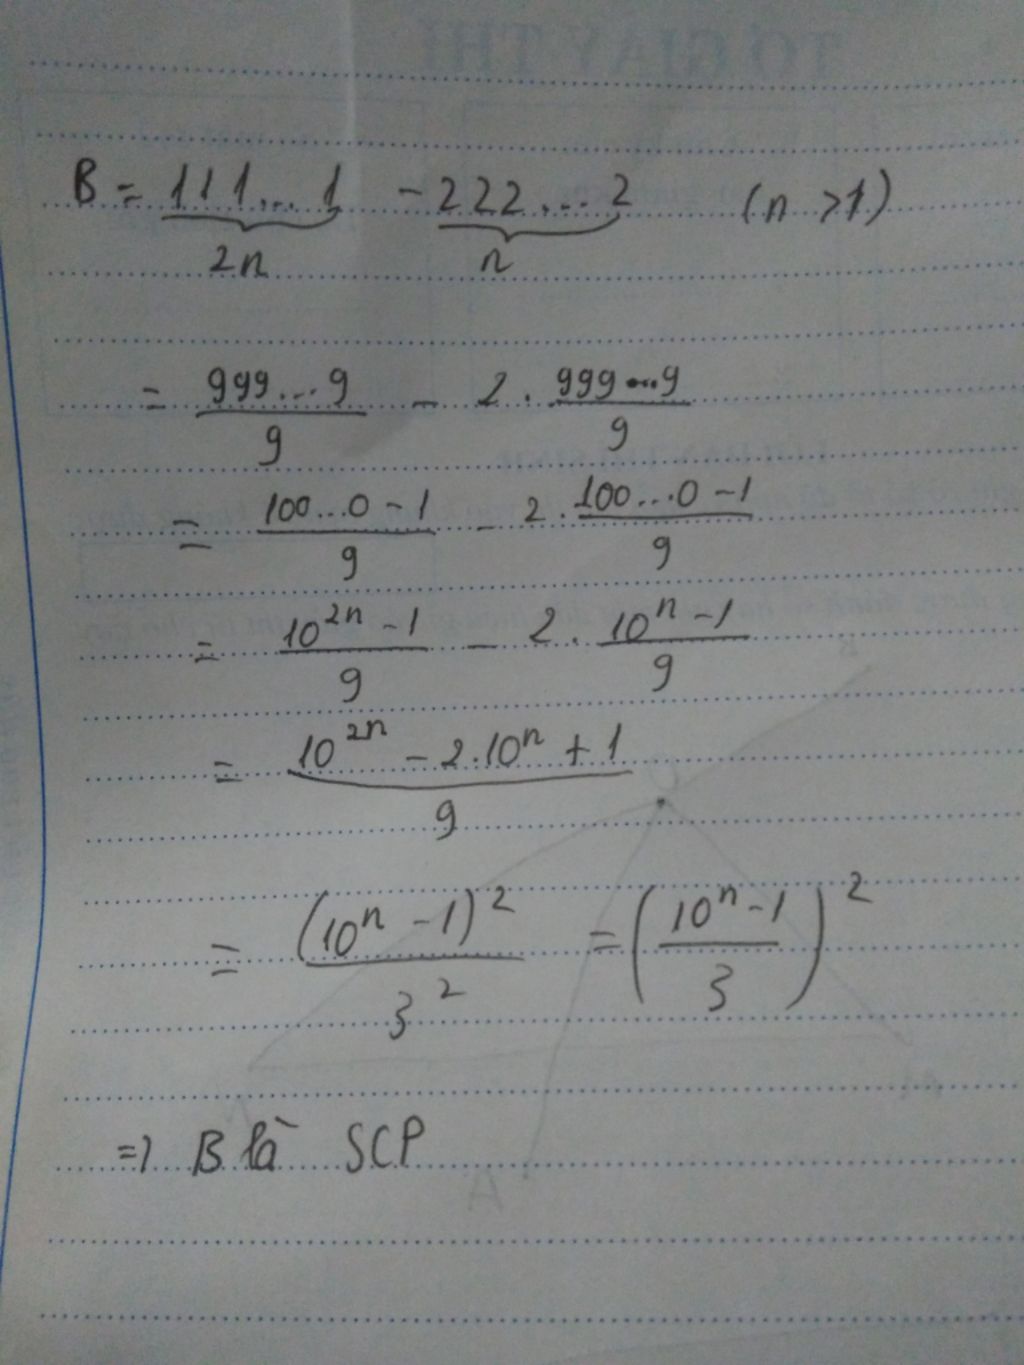 TỜ GIẤY THI
B = 111...1 - 222...2 (n > 1)
2n n
= 999...9/9 - 2 . 999...9/9
= (100...0 - 1)/9 - 2 . (100...0 - 1)/9
= (10^2n - 1)/9 - 2 . (10^n - 1)/9
= (10^2n - 2.10^n + 1)/9
= (10^n - 1)^2/3^2 = ((10^n - 1)/3)^2
=) B là SCP